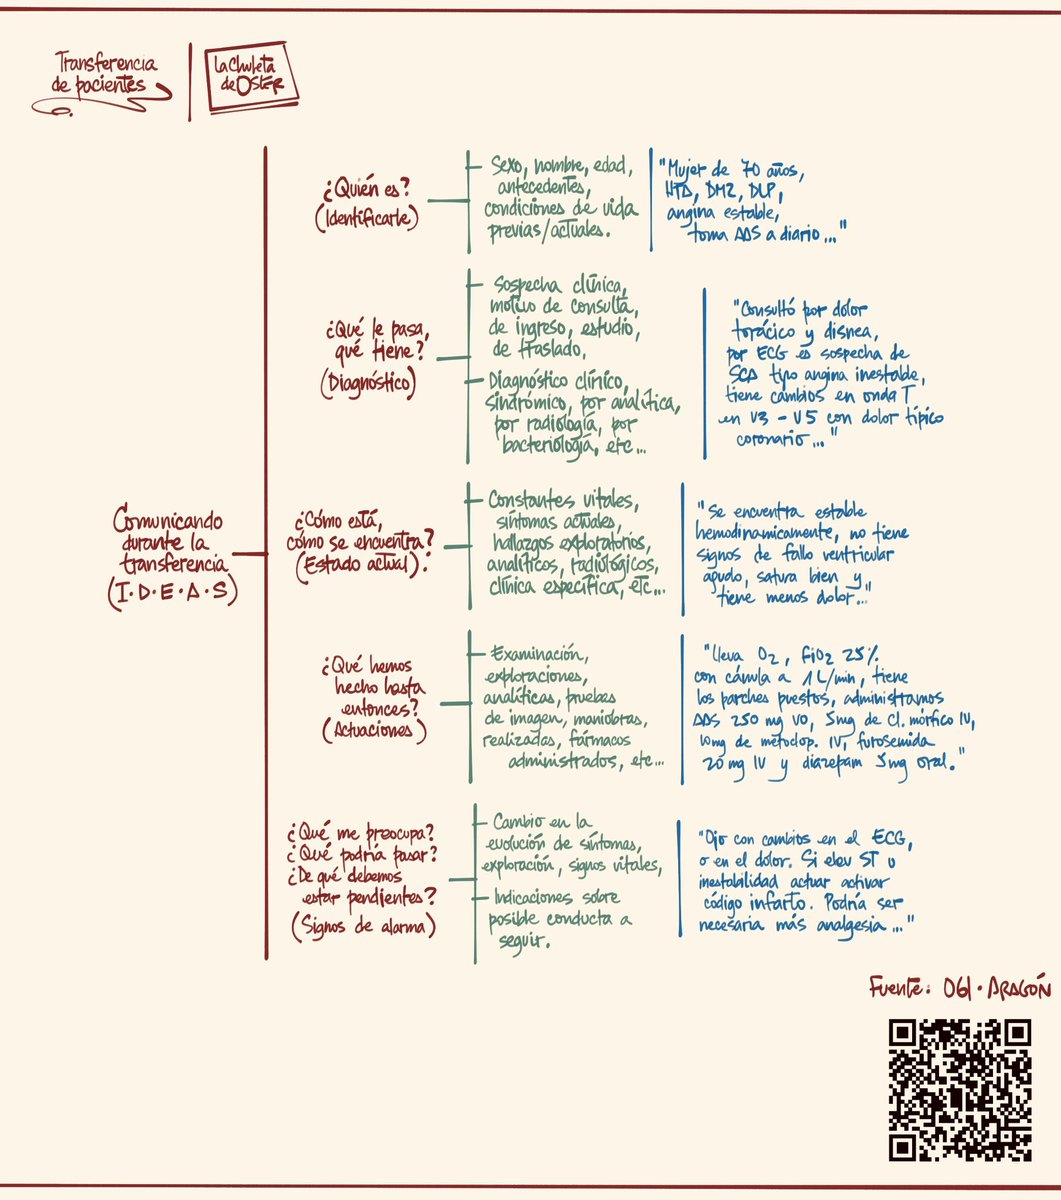 Transferencia
de pacientes
La Chuleta
de OSTER
Comunicando
durante la
transferencia
(I·D·E·A·S)
¿Quién es?
(Identificarle)
Sexo, nombre, edad,
antecedentes,
condiciones de vida
previas/actuales.
"Mujer de 70 años,
HTA, DM2, DLP,
angina estable,
toma AAS a diario..."
¿Qué le pasa,
qué tiene?
(Diagnóstico)
Sospecha clínica,
motivo de consulta,
de ingreso, estudio,
de traslado,
Diagnóstico clínico,
sindrómico, por analítica,
por radiología, por
bacteriología, etc...
"Consultó por dolor
torácico y disnea,
por ECG es sospecha de
SCA tipo angina inestable,
tiene cambios en onda T
en V3 - V5 con dolor típico
coronario..."
¿Cómo está,
cómo se encuentra?
(Estado actual).
Constantes vitales,
síntomas actuales,
hallazgos exploratorios,
analíticos, radiológicos,
clínica específica, etc...
"Se encuentra estable
hemodinamicamente, no tiene
signos de fallo ventricular
agudo, satura bien y
tiene menos dolor..."
¿Qué hemos
hecho hasta
entonces?
(Actuaciones)
Examinación,
exploraciones,
analíticas, pruebas
de imagen, maniobras,
realizadas, fármacos
administrados, etc...
"Lleva O2, FiO2 25%
con cánula a 1 L/min, tiene
los parches puestos, administramos
AAS 250 mg VO, 5mg de Cl. mórfico IV,
10mg de metoclop. IV, furosemida
20 mg IV y diazepam 5mg oral."
¿Qué me preocupa?
¿Qué podría pasar?
¿De qué debemos
estar pendientes?
(Signos de alarma)
Cambio en la
evolución de síntomas,
exploración, signos vitales,
Indicaciones sobre
posible conducta a
seguir.
"Ojo con cambios en el ECG,
o en el dolor. Si elev ST u
inestabilidad actuar activar
código infarto. Podría ser
necesaria más analgesia..."
Fuente: 061·ARAGÓN